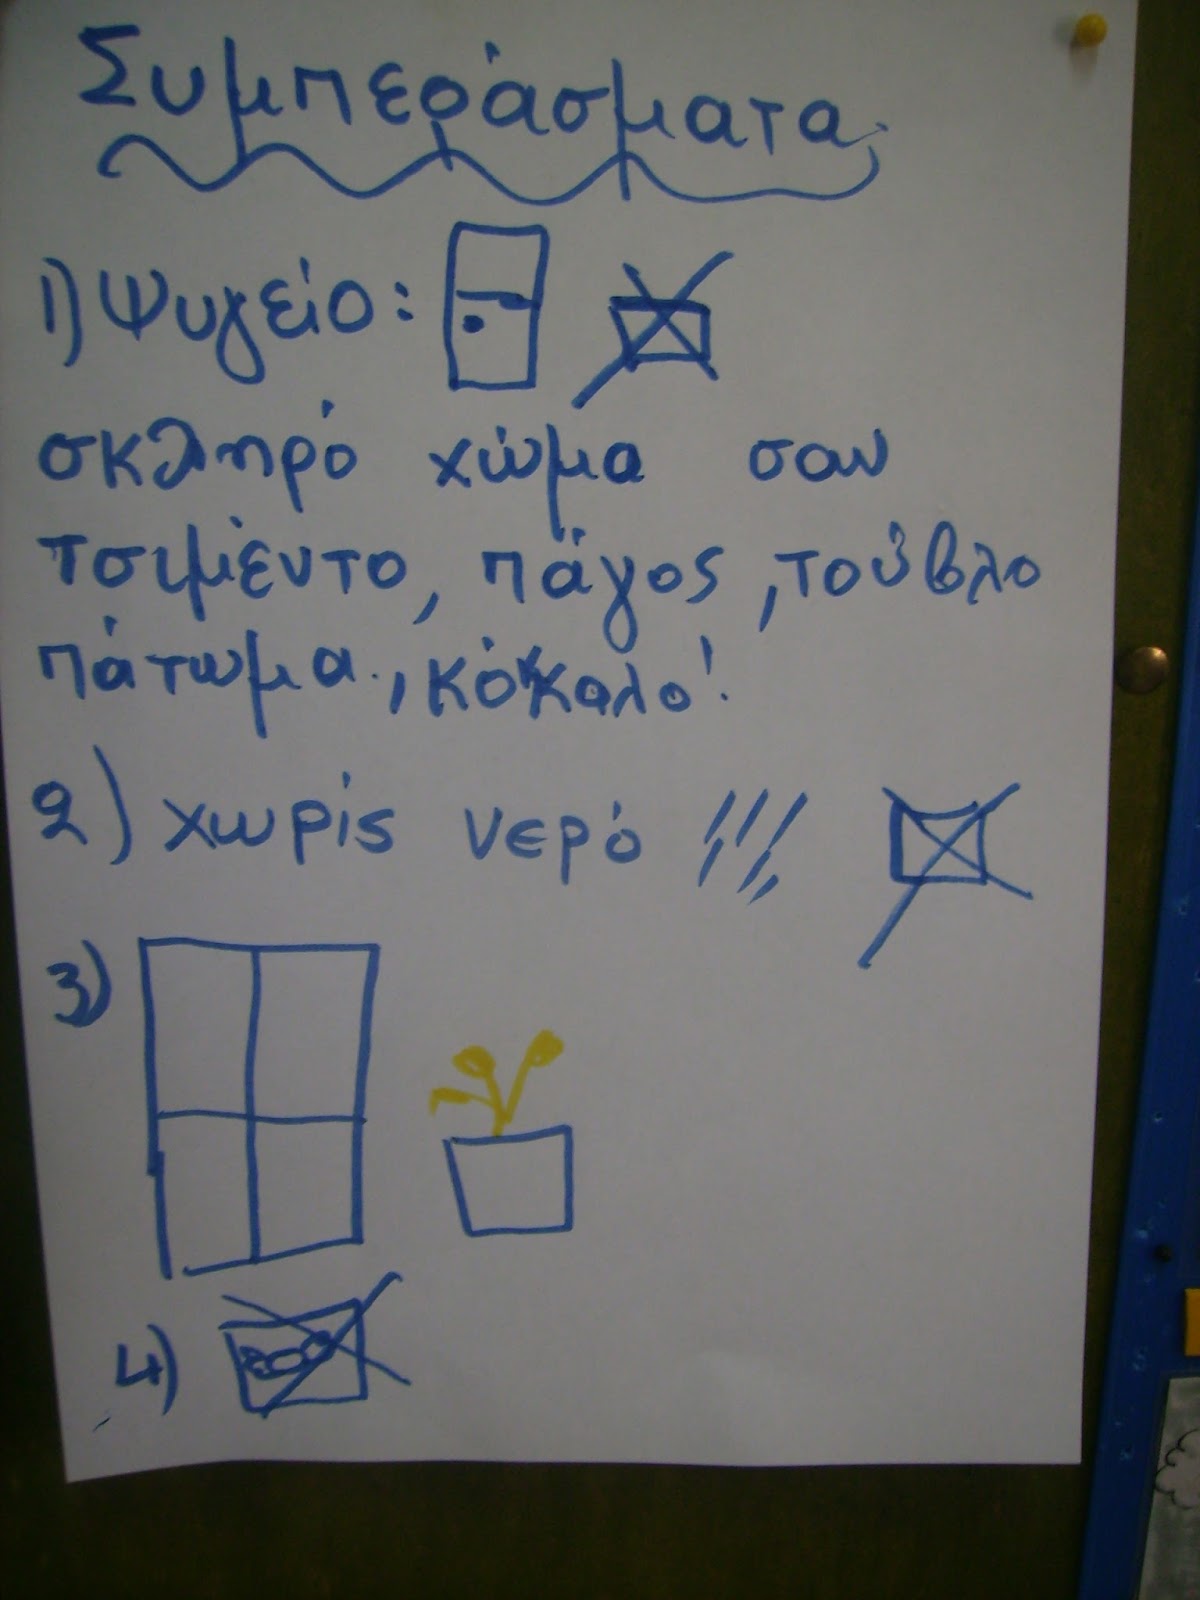 Συμπεράσματα
1) Ψυγείο:
σκληρό χώμα σαν
τσιμέντο, πάγος, τούβλο
πάτωμα., κόκκαλο!
2) χωρίς νερό
3)
4)